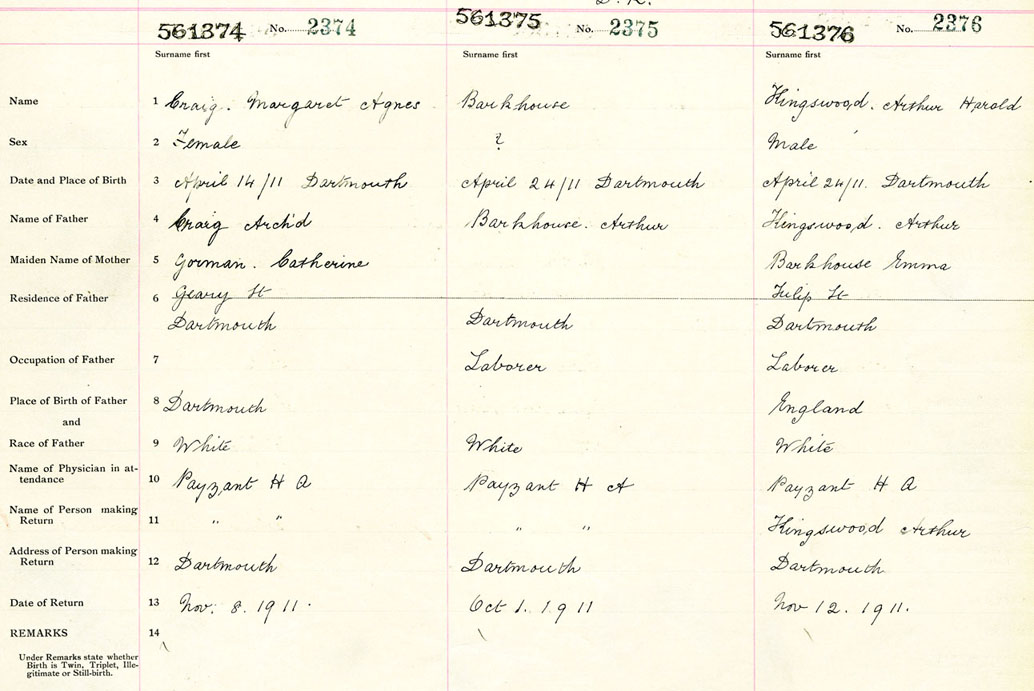 561374 No. 2374 561375 No. 2375 561376 No. 2376
Surname first Surname first Surname first
Name 1 Craig. Margaret Agnes Barkhouse Kingswood. Arthur Harold
Sex 2 Female ? Male
Date and Place of Birth 3 April 14/11 Dartmouth April 24/11 Dartmouth April 24/11. Dartmouth
Name of Father 4 Craig Arch'd Barkhouse. Arthur Kingswood. Arthur
Maiden Name of Mother 5 Gorman. Catherine Barkhouse Emma
Residence of Father 6 Geary St Tulip St
Dartmouth Dartmouth Dartmouth
Occupation of Father 7 Laborer Laborer
Place of Birth of Father 8 Dartmouth England
and
Race of Father 9 White White White
Name of Physician in at-
tendance 10 Payzant H A Payzant H A Payzant H A
Name of Person making
Return 11 " " " " Kingswood Arthur
Address of Person making
Return 12 Dartmouth Dartmouth Dartmouth
Date of Return 13 Nov. 8. 1911. Oct 1. 1911 Nov 12. 1911.
REMARKS 14
Under Remarks state whether
Birth is Twin, Triplet, Ille-
gitimate or Still-birth.